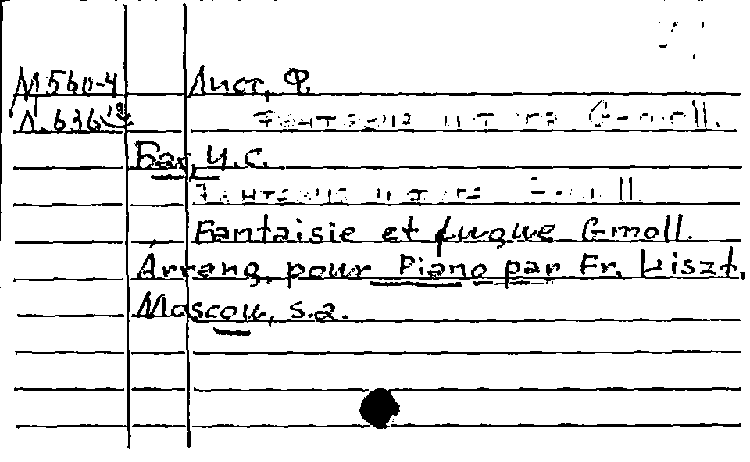 М560-4 Лист, Ф.
Л.636 Фантазия и фуга G-moll.
Бах, И.С.
Фантазия и фуга G-moll
Fantaisie et fugue G moll.
Arrang. pour Piano par Fr. Liszt.
Moscou, s.a.